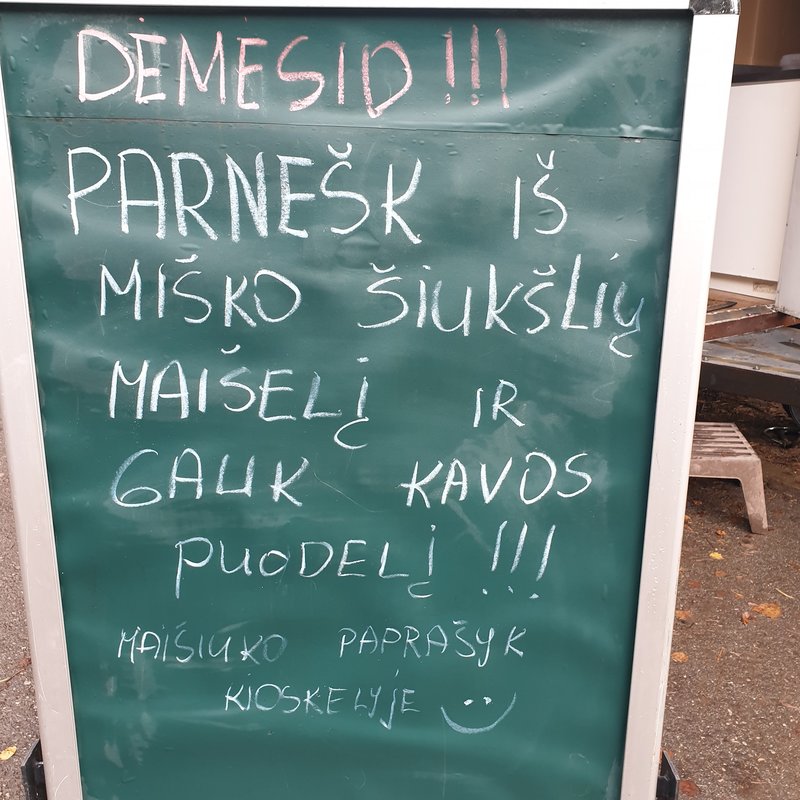 DĖMĖSIO !!!
PARNEŠK IŠ
MIŠKO ŠIUKŠLIŲ
MAIŠELĮ IR
GAUK KAVOS
PUODELĮ !!!
MAIŠIUKO PAPRAŠYK
KIOSKELYJE